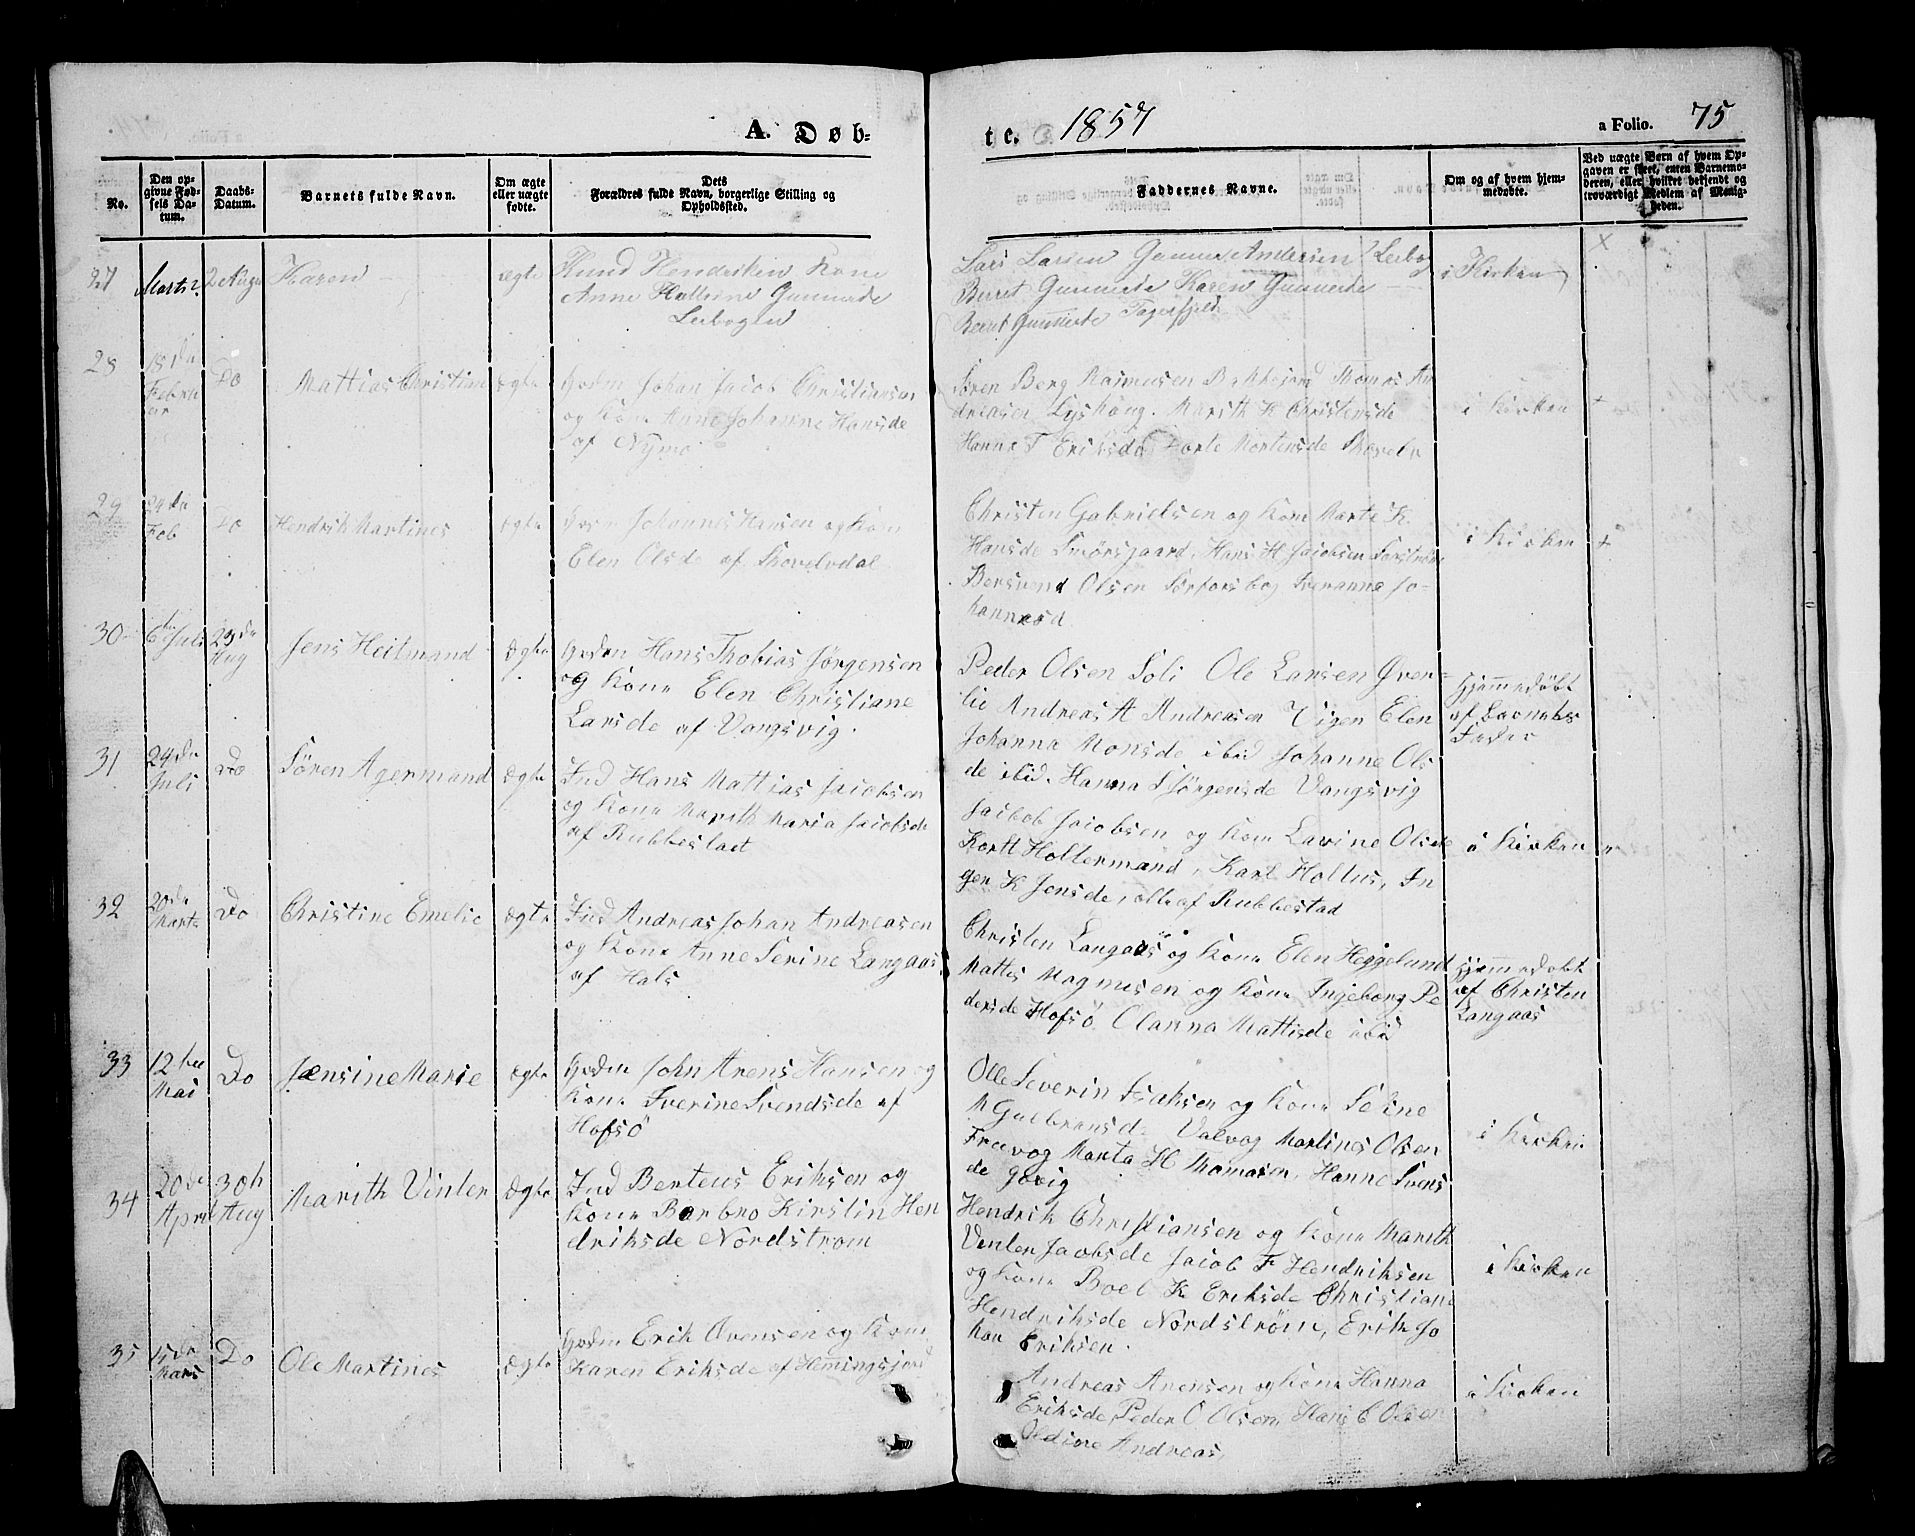 A. Døb=
te. 1857
a Folio. 75
No.
Den op-
givne Fød-
sels Da-
tum.
Daabs-
Datum.
Barnets fulde Navn.
Om ægte
eller uægte
fødte.
Dets
Forældres fulde Navn, borgerlige Stilling og
Opholdssted.
Faddernes Navne.
Om og af hvem hjem-
medøbte.
Ved uægte Børn af hvem Op-
gaven er skeet, enten Barnemo-
deren, eller hvilket bekjendt og
troværdigt Medlem af Menig-
heden.
27
Marts
Karen
ægte
Knud Hendriksen Kone
Anne Gunersde
Leibogen
Lars Larsen Gunner Andersen
Berret Gunnersde Karen Gunnersde
Berret Gunnersde
i Kirken
28
18 de
Februar
Do
Mattias Christian
ægte
Grdm Johan Jacob Christiansen
og Kone Anne Johanne Hansde
af Nymo
Sören Berg Rasmusen Bakkejord Thomas An
dreasen Lyshaug. Marith K Christensde
Hanna T Eriksde Dorte Mortensde
i Kirken
29
24 de
Feb
Do
Hendrik Martines
ægte
Johannes Hansen og Kone
Elen Olsde af Skovelvdal
Christen Gabrielsen og Kone Marte K.
Hansde Smörsgaard, Hans H Jacobsen
Bersvend Olsen Sörforsbog Sveranna Jo-
hannesd
i Kirken
30
6 te Juli
23 de
Aug
Jens Heitmand
Ægte
Grdm Hans Thobias Jörgensen
og Kone Elen Christiane
Larsde af Vangsvig.
Peder Olsen Soli Ole Larsen Øver=
lie Andreas A Andreasen Vigen Elen
Johanna Monsde ibid Johanne Ols
de ibid. Hanna S Jörgensde Vangsvig
Hjemmedøbt
af Barnets
Fader
31
24 de
Juli
Do
Sören Agermand
Ægte
Ind Hans Mattias Jacobsen
og Kone Marith Maria Jacobsde
af Rubbestad
Jacob Jacobsen og Kone Lavine Olsde
Kortt Holtermand, Karl Holtus, In
ger K Jensde, alle af Rubbestad
i Kirken
32
20 de
Marts
Do
Christine Emelie
Ægte
Ind Andreas Johan Andreasen
og Kone Anne Serine Langaas
af Hals
Christen Langaas og Kone Elen Heggelund
Mattis Magnusen og Kone Ingeborg Pe
dersde Hofsö Olanna Mattisde ibid
Hjemmedøbt
af Christen
Langaas
33
12 te
Mai
Do
Jænsine Marie
ægte
Grdm John Arens Hansen og
Kone Iverine Svendsde af
Hofsö
Olle Severin Isaksen og Kone Seline
M Gulbransde Valvog Martines Olsen
Freevog Marta H Momasen, Hanne Svens
de Govig
i Kirken
34
20 de
April
30 te
Aug
Marith Vinter
Ægte
Ind Berteus Eriksen og
Kone Barbro Kirstin Hen
driksde Nordstrom
Hendrik Christiansen og Kone Marith
Venter Jacobsde Jacob F Hendriksen
og Kone Boel K Eriksde Christiane
Hendriksde Nordström, Erik Jo
han Eriksen.
i Kirken
35
15 de
Mars
Do
Ole Martines
Ægte
Grdm Erik Arensen og Kone
Karen Eriksde af Hemingsjord
Andreas Arensen og Kone Hanna
Eriksde, Peder O Olsen, Hans C Olsen
Oldine Andreas,
i Kirken